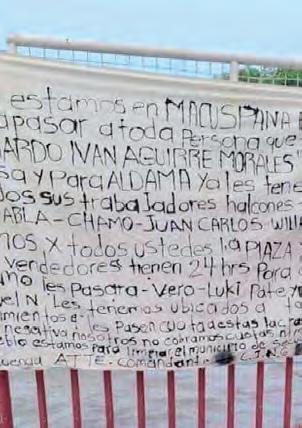 estamos en MACUSPANA E
apasar atoda Persona que
ARDO IVAN AGUIRRE MORALES"
sa y Para ALDAMA Ya les tene
dos sus trabajadores halcones
ABLA-CHAMO-JUAN CARLOS WILL
mos X todos ustedes la PLAZA
vendedores tienen 24 hrs Para
mo les Pasara-Vero-Luki Pate
vel N Les tenemos ubicados a
mientos e les Pasen cuota estas
negativa nosotros no cobramos cuotas ni
blo estamos para limpiar el municipio de
uenga ATTE. Comandante C.J.N.G